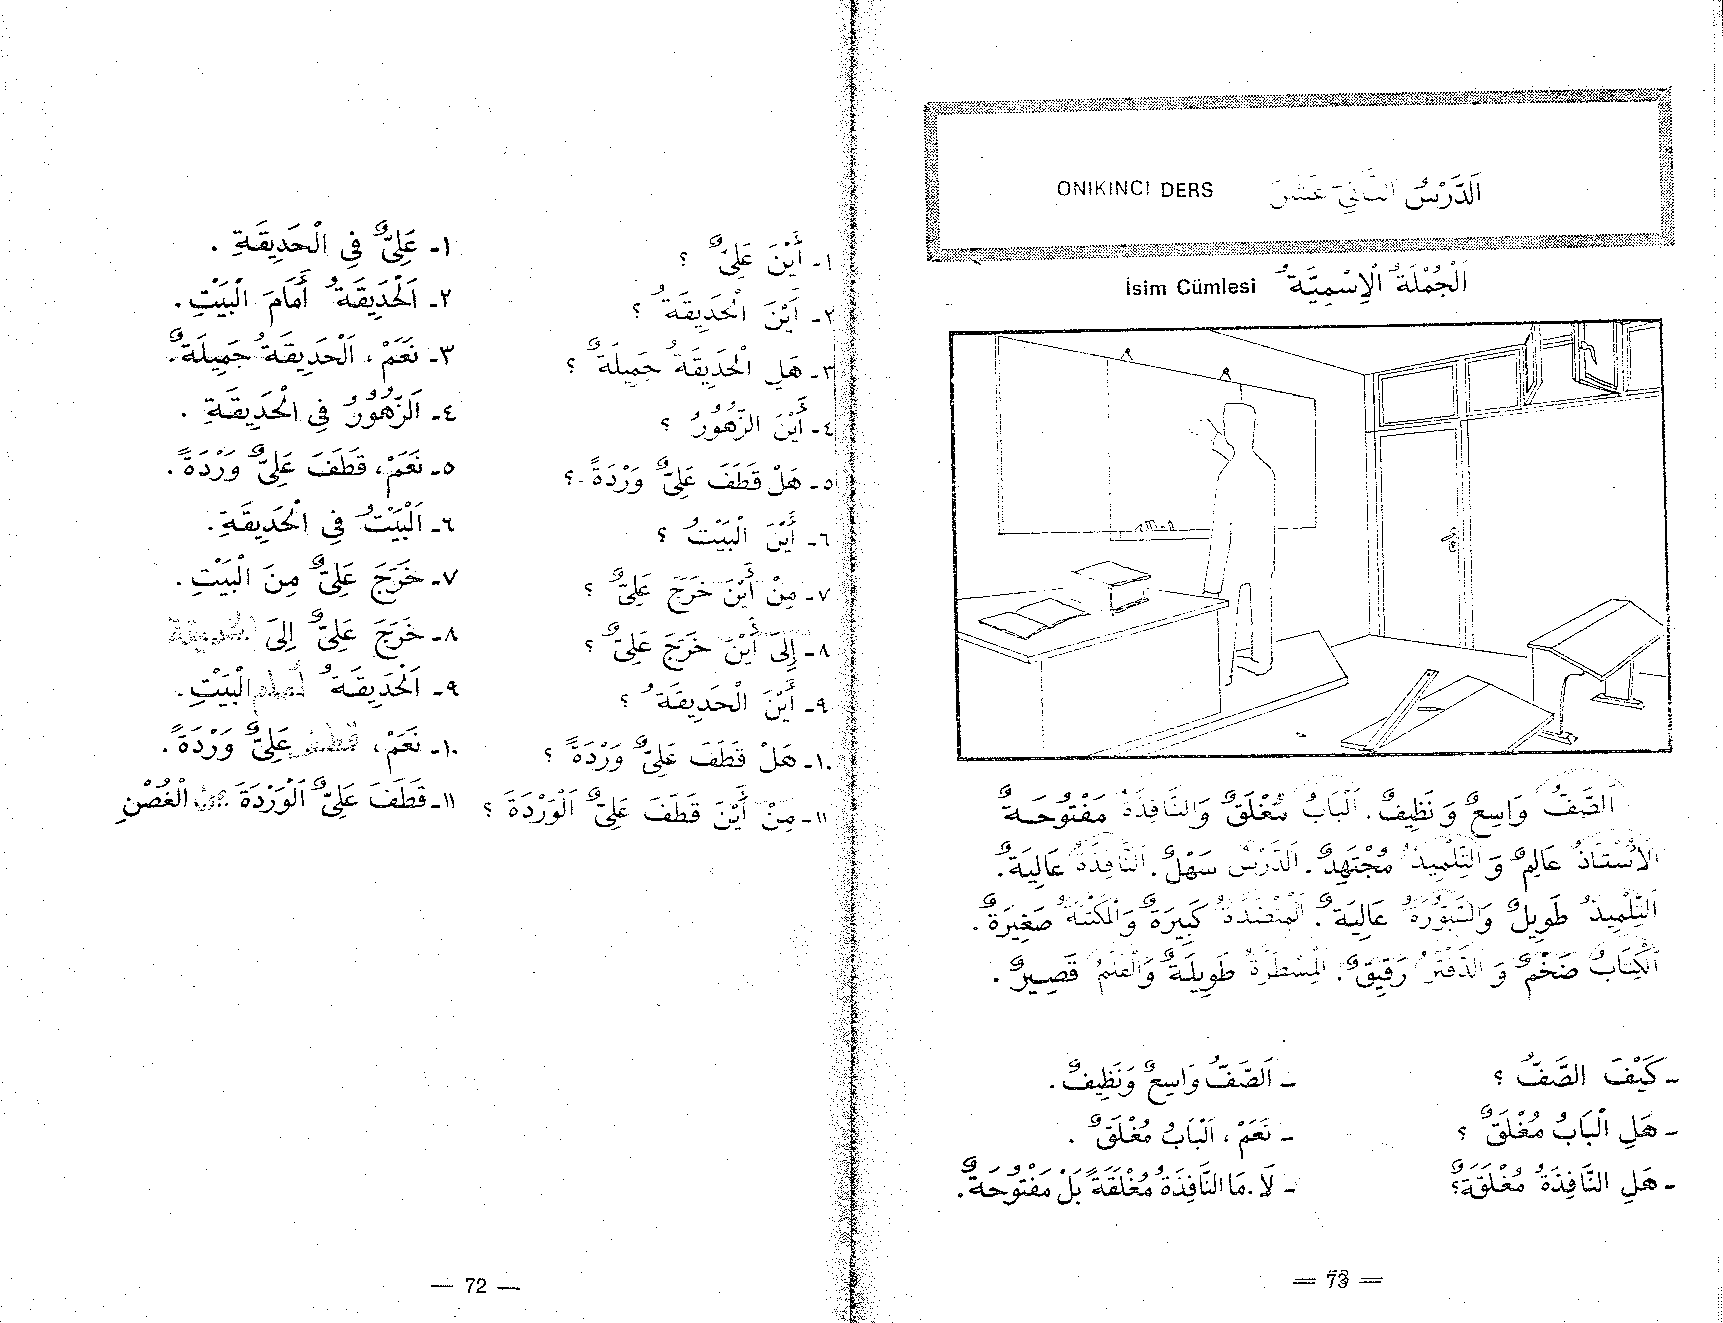 ١- أَيْنَ عَلِيٌّ ؟
٢- أَيْنَ الْحَدِيقَةُ ؟
٣- هَلِ الْحَدِيقَةُ جَمِيلَةٌ ؟
٤- أَيْنَ الزُّهُورُ ؟
٥- هَلْ قَطَفَ عَلِيٌّ وَرْدَةً ؟
٦- أَيْنَ الْبَيْتُ ؟
٧- مِنْ أَيْنَ خَرَجَ عَلِيٌّ ؟
٨- إِلَى أَيْنَ خَرَجَ عَلِيٌّ ؟
٩- أَيْنَ الْحَدِيقَةُ ؟
١٠- هَلْ قَطَفَ عَلِيٌّ وَرْدَةً ؟
١١- مِنْ أَيْنَ قَطَفَ عَلِيٌّ الْوَرْدَةَ ؟
١- عَلِيٌّ فِي الْحَدِيقَةِ .
٢- اَلْحَدِيقَةُ أَمَامَ الْبَيْتِ .
٣- نَعَمْ ، اَلْحَدِيقَةُ جَمِيلَةٌ .
٤- اَلزُّهُورُ فِي الْحَدِيقَةِ .
٥- نَعَمْ، قَطَفَ عَلِيٌّ وَرْدَةً .
٦- اَلْبَيْتُ فِي الْحَدِيقَةِ .
٧- خَرَجَ عَلِيٌّ مِنَ الْبَيْتِ .
٨- خَرَجَ عَلِيٌّ إِلَى الْحَدِيقَةِ
٩- اَلْحَدِيقَةُ أَمَامَ الْبَيْتِ .
١٠- نَعَمْ ، قَطَفَ عَلِيٌّ وَرْدَةً .
١١- قَطَفَ عَلِيٌّ الْوَرْدَةَ مِنَ الْغُصْنِ
— 72 —
ONİKİNCİ DERS اَلدَّرْسُ الثَّانِيَ عَشَرَ
İsim Cümlesi اَلْجُمْلَةُ الْإِسْمِيَّةُ
اَلصَّفُّ وَاسِعٌ وَ نَظِيفٌ . اَلْبَابُ مُغْلَقٌ وَالنَّافِذَةُ مَفْتُوحَةٌ
اَلْأُسْتَاذُ عَالِمٌ وَ التِّلْمِيذُ مُجْتَهِدٌ . اَلدَّرْسُ سَهْلٌ . اَلنَّافِذَةُ عَالِيَةٌ .
اَلتِّلْمِيذُ طَوِيلٌ وَالسَّبُّورَةُ عَالِيَةٌ . اَلْمِنْضَدَةُ كَبِيرَةٌ وَالْمَكْتَبَةُ صَغِيرَةٌ .
اَلْكِتَابُ ضَخْمٌ وَ الدَّفْتَرُ رَقِيقٌ . اَلْمِسْطَرَةُ طَوِيلَةٌ وَالْقَلَمُ قَصِيرٌ .
- كَيْفَ الصَّفُّ ؟ - اَلصَّفُّ وَاسِعٌ وَنَظِيفٌ .
- هَلِ الْبَابُ مُغْلَقٌ ؟ - نَعَمْ ، اَلْبَابُ مُغْلَقٌ .
- هَلِ النَّافِذَةُ مُغْلَقَةٌ؟ - لَا . مَا النَّافِذَةُ مُغْلَقَةً بَلْ مَفْتُوحَةٌ .
= 73 =